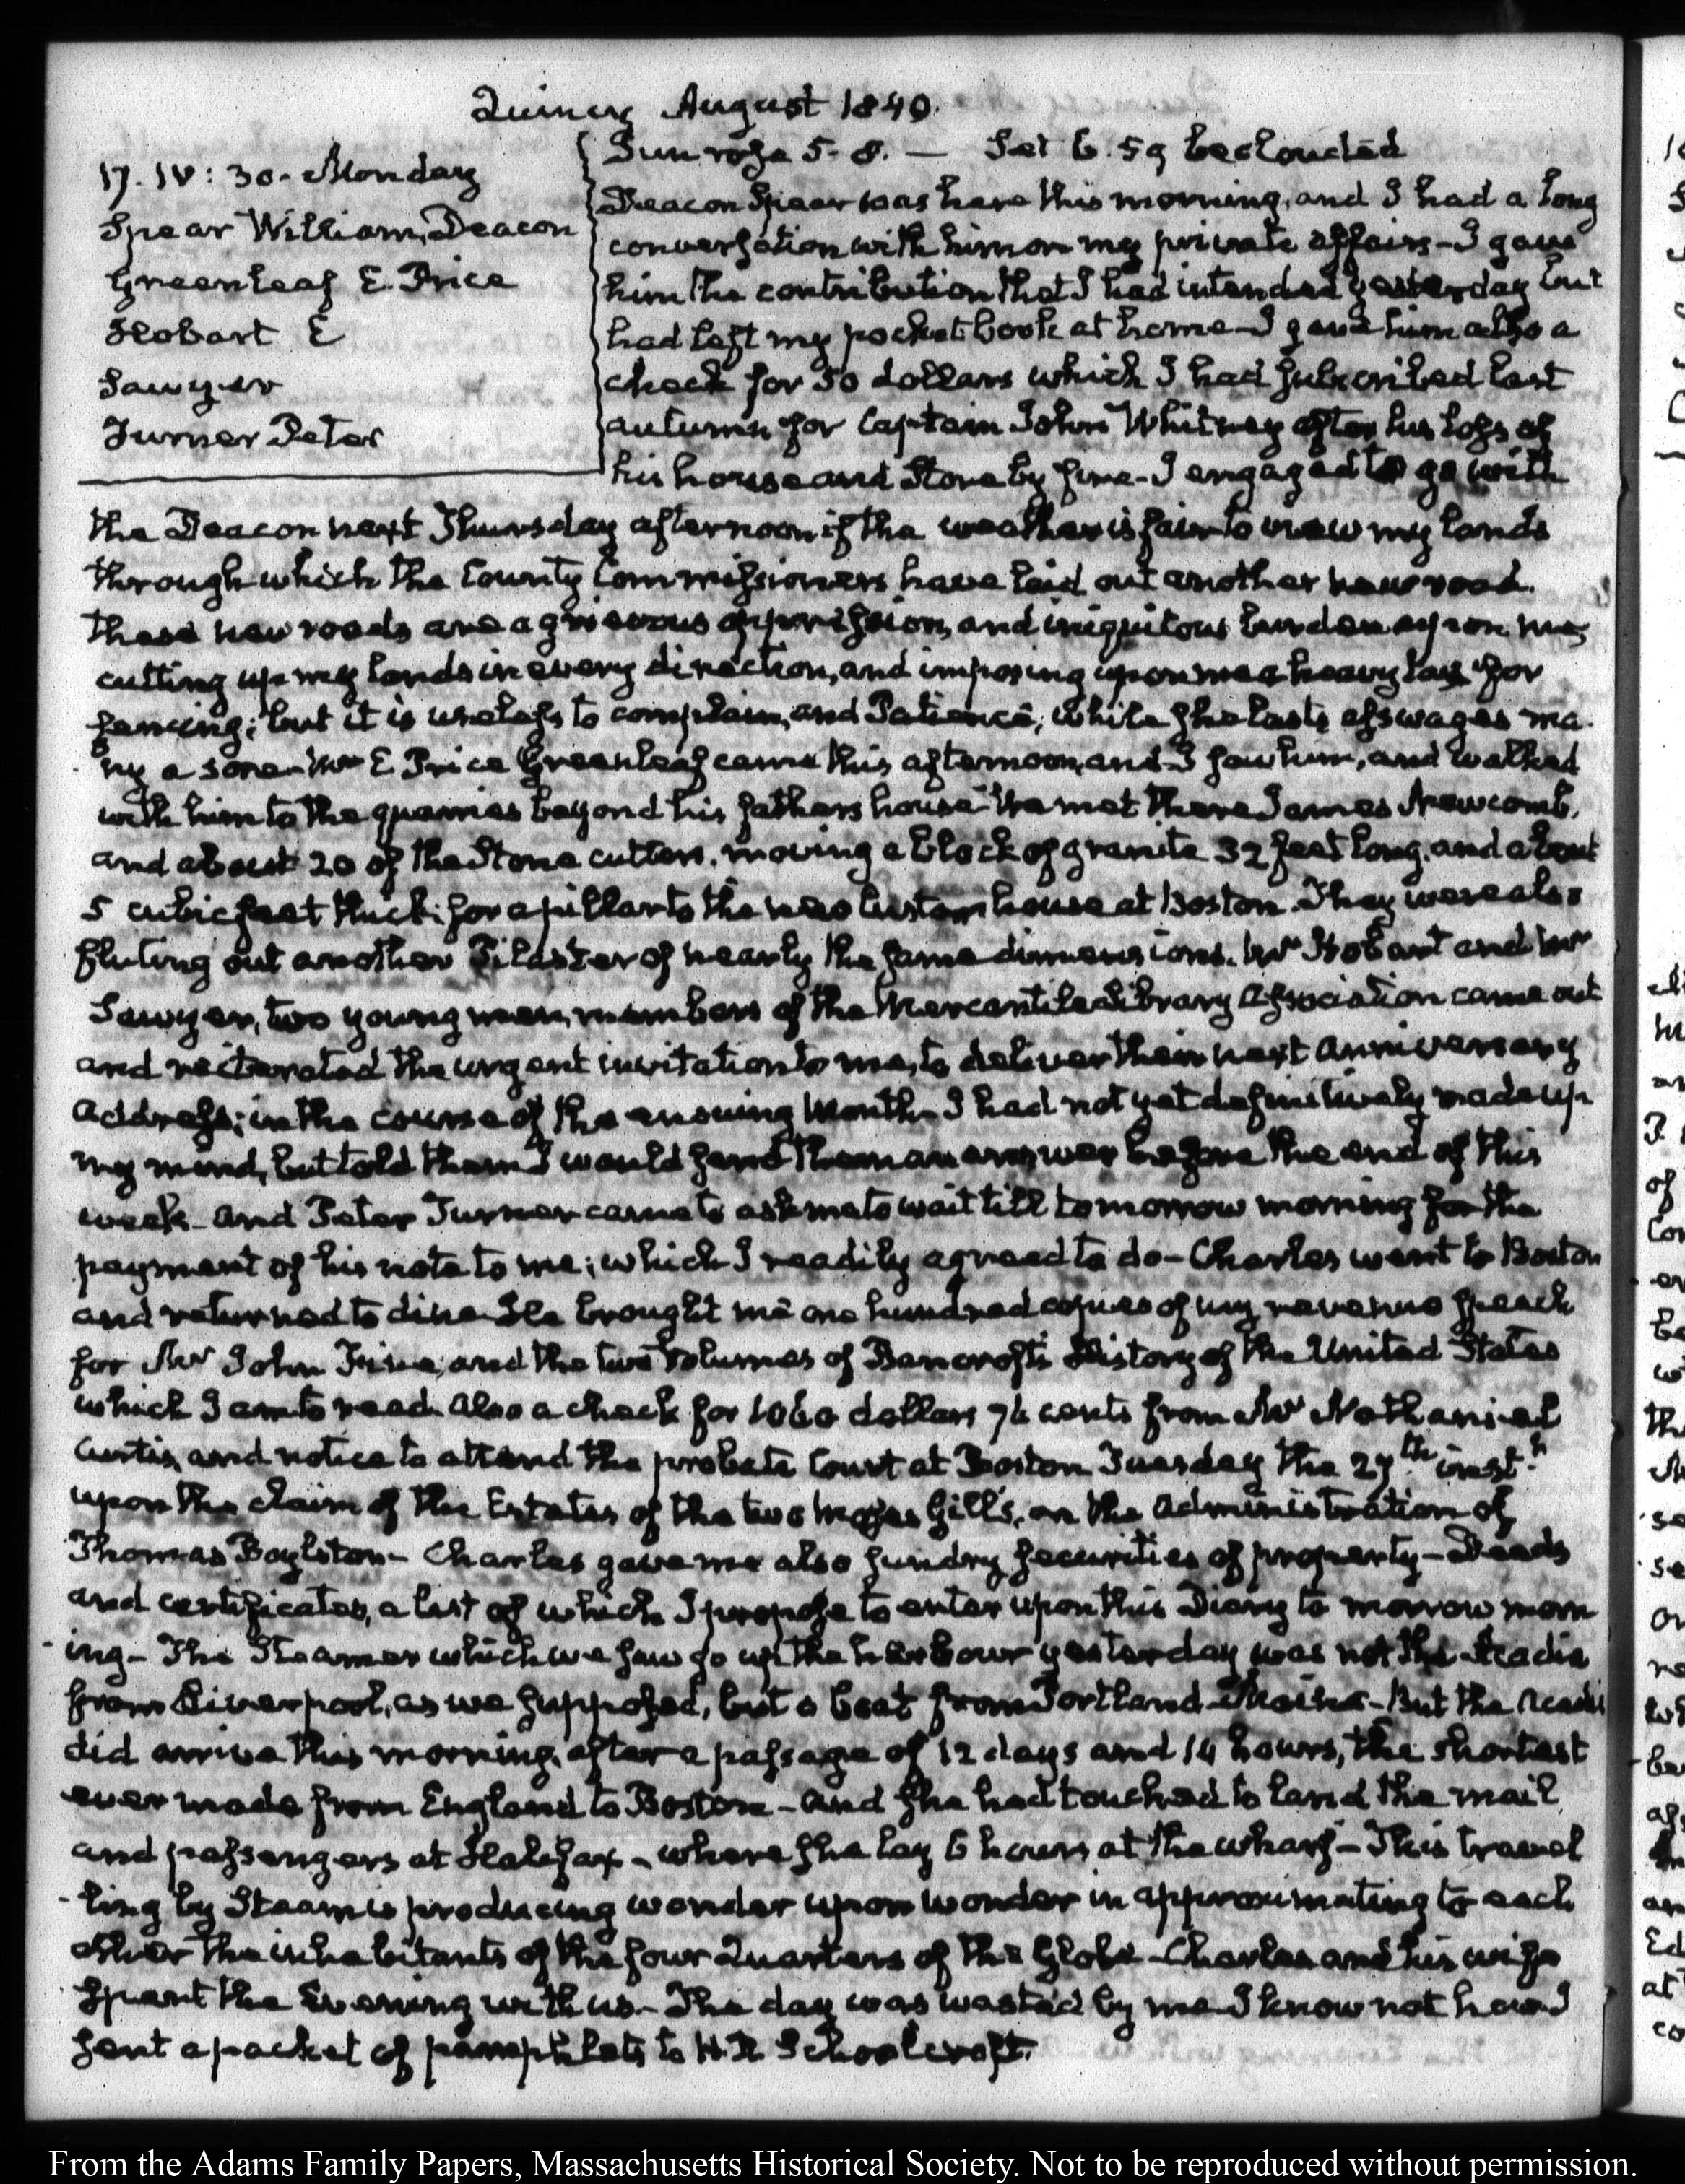 Quincy August 1840.
17. IV: 30. Monday
Spear William, Deacon
Greenleaf E. Price
Hobart E
Sawyer
Turner Peter
Sun rose 5. 8. — Set 6. 59 beclouded
Deacon Spear was here this morning, and I had a long
conversation with him on my private affairs – I gave
him the contribution that I had intended yesterday but
had left my pocket book at home – I gave him also a
check for 50 dollars which I had subscribed last
autumn for Captain John Whitney after his loss of
his house and Store by fire – I engaged to go with
the Deacon next Thursday afternoon if the weather is fair to view my lands
through which the County Commissioners have laid out another new road.
these new roads are a grievous oppression, and iniquitous burden upon me,
cutting up my lands in every direction, and imposing upon me a heavy tax for
fencing; but it is useless to complain, and Patience, while she lasts asswages ma-
ny a sore – Mr E. Price Greenleaf came this afternoon, and I saw him, and walked
with him to the quarries beyond his fathers house – We met there James Newcomb,
and about 20 of the Stone cutters, moving a block of granite 32 feet long, and about
5 cubic feet thick, for a pillar to the new Custom house at Boston. They were also
fluting out another Pilaster of nearly the same dimensions. Mr Hobart and Mr
Sawyer, two young men, members of the Mercantile Library Association came out
and reiterated the urgent invitation to me, to deliver their next anniversary
address; in the course of the ensuing Month – I had not yet definitively made up
my mind, but told them I would send them an answer before the end of this
week – and Peter Turner came to ask me to wait till tomorrow morning for the
payment of his note to me; which I readily agreed to do – Charles went to Boston
and returned to dine. He brought me one hundred copies of my revenue speech
for Mr John and the two Volumes of Bancroft's History of the United States
which I am to read. also a check for 1060 dollars 76 cents from Mr Nathaniel
Curtis, and notice to attend the probate Court at Boston Tuesday the 27th. inst.
upon the claim of the Estates of the two Moses Gill's, on the administration of
Thomas Boylston – Charles gave me also sundry securities of property – Deeds
and certificates, a list of which I propose to enter upon this Diary to morrow morn
-ing – The Steamer which we saw go up the harbour yesterday was not the Acadia
from Liverpool, as we supposed, but a boat from Portland – Maine – But the Acadia
did arrive this morning, after a passage of 12 days and 14 hours, the shortest
ever made from England to Boston – and she had touched to land the mail
and passengers at Halifax – where she lay 6 hours at the wharf – This travel
-ling by Steam is producing wonder upon wonder in approximating to each
other the inhabitants of the four Quarters of the Globe – Charles and his wife
spent the Evening with us – The day was wasted by me I know not how I
sent a packet of pamphlets to H. R. Schoolcraft.
From the Adams Family Papers, Massachusetts Historical Society. Not to be reproduced without permission.